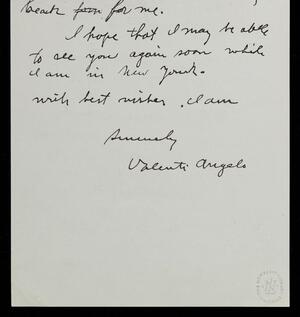 for me.
I hope that I may be able
to see you again soon while
I am in New York.
with best wishes, I am
Sincerely
Valenti Angelo